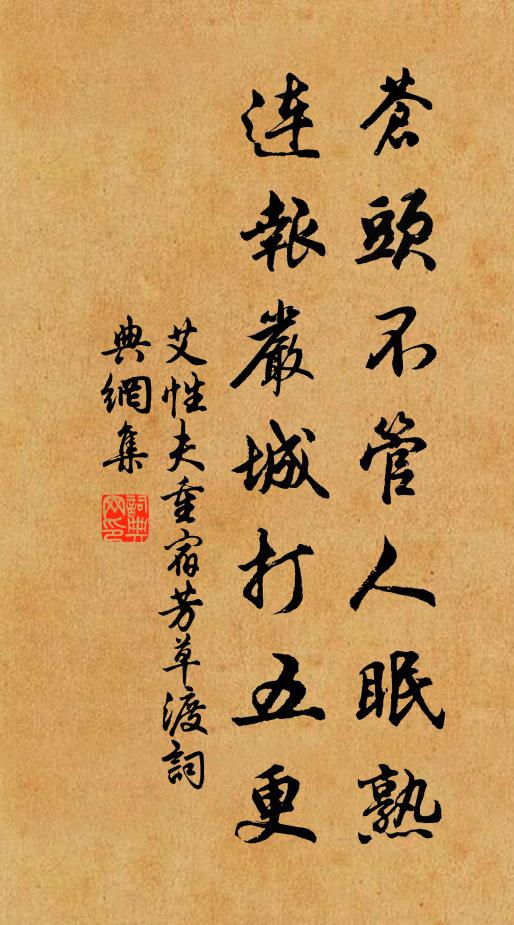 蒼頭不管人眠熟
連報嚴城打五更
艾性夫重宿芳草渡詞
典網集
詞典網印